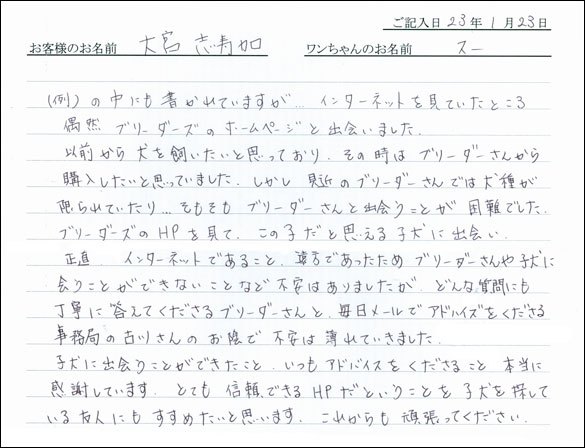 ご記入日 23年 1月 23日
お客様のお名前 大宮 志寿加 ワンちゃんのお名前 スー
(例)の中にも書かれていますが… インターネットを見ていたところ
偶然 ブリーダーズのホームページと出会いました.
以前から犬を飼いたいと思っており、その時はブリーダーさんから
購入したいと思っていました. しかし 身近のブリーダーさんでは犬種が
限られていたり…そもそも ブリーダーさんと出会うことが 困難でした.
ブリーダーズのHPを見て、この子だと思える子犬に出会い.
正直、インターネットであること、遠方であったため ブリーダーさんや子犬に
会うことができないことなど不安はありましたが、どんな質問にも
丁寧に答えてくださるブリーダーさんと、毎日メールでアドバイスをくださる
事務局の古川さんのお陰で 不安は薄れていきました.
子犬に出会うことができたこと、いつもアドバイスをくださること 本当に
感謝しています. とても信頼できるHPだということを 子犬を探して
いる友人にもすすめたいと思います. これからも頑張ってください.